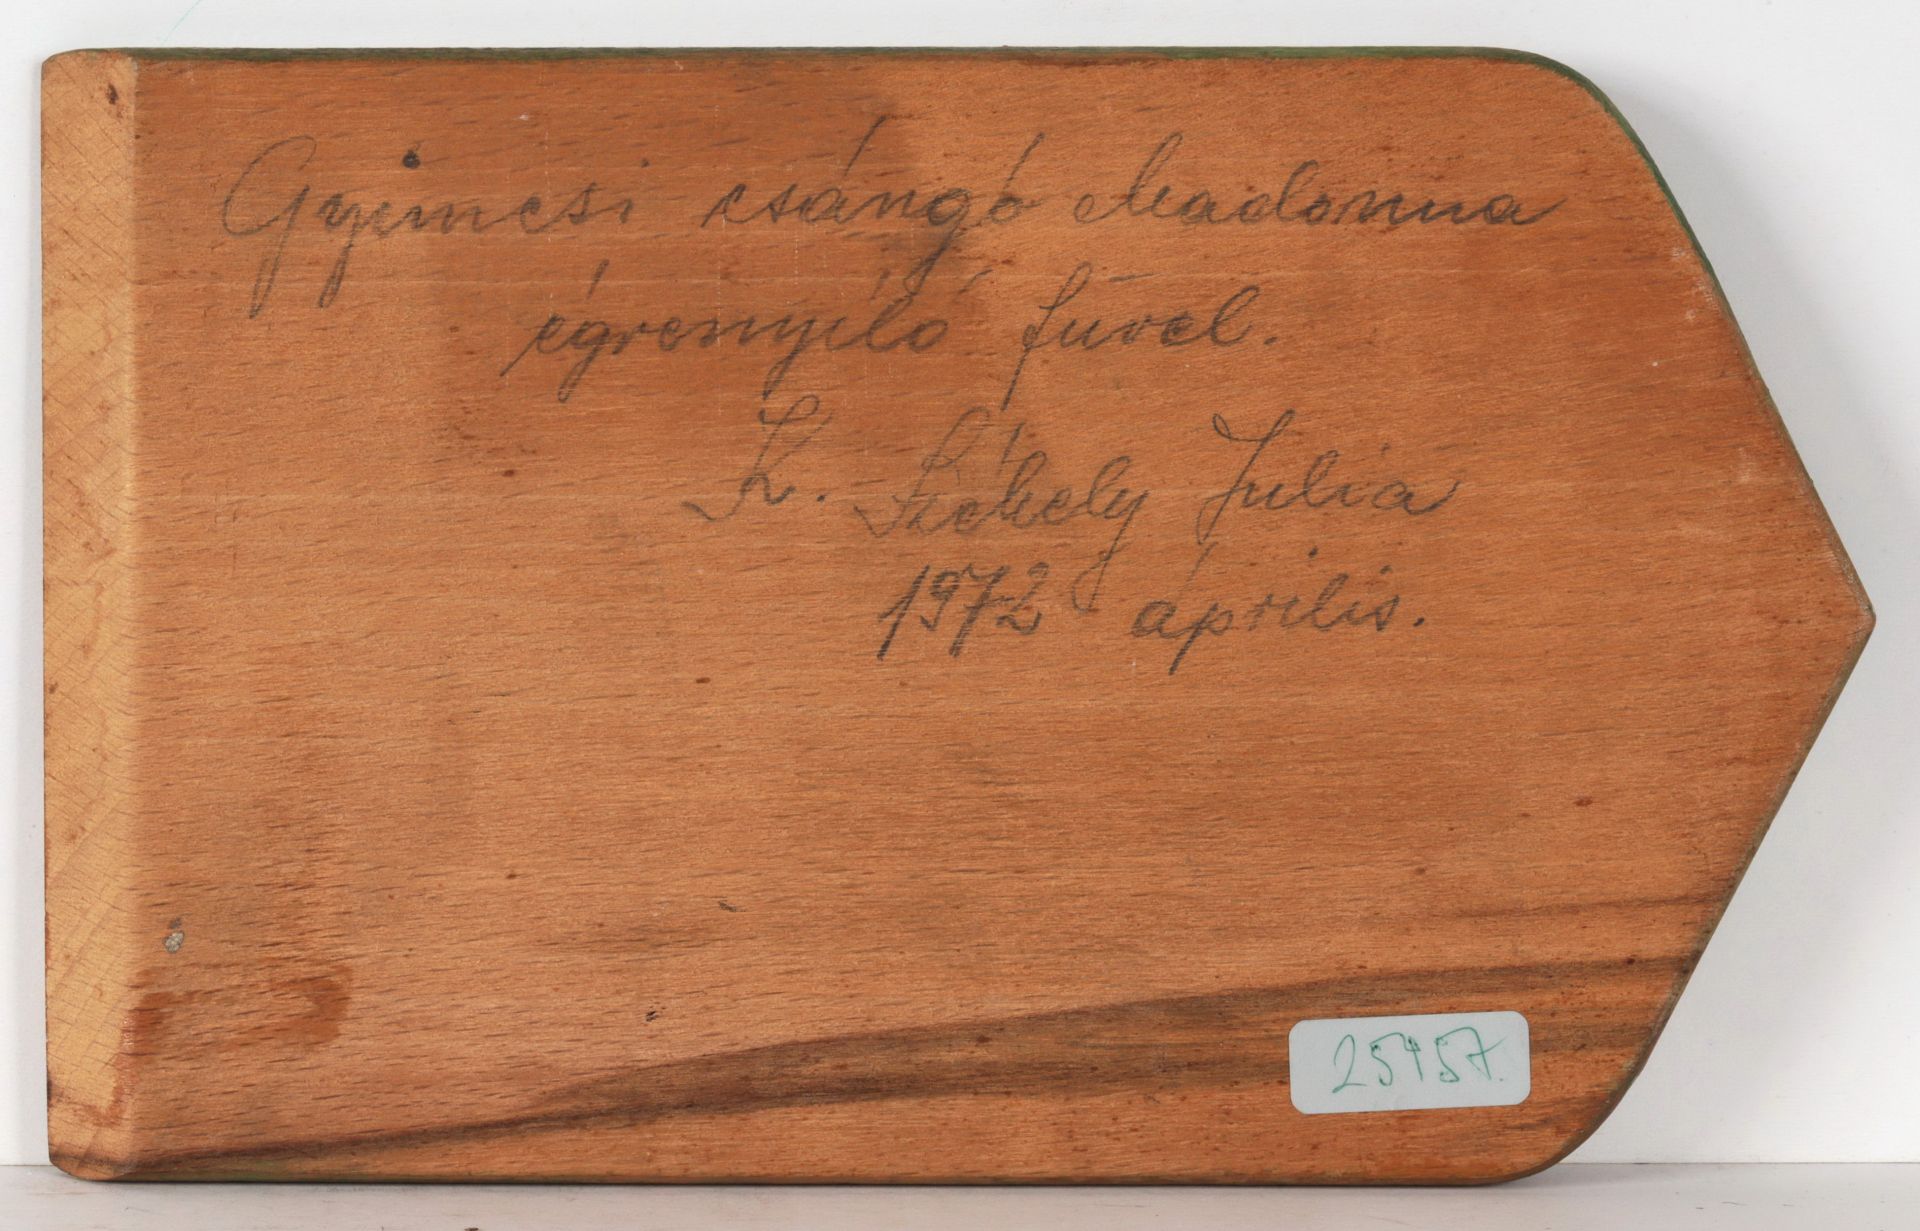 Gyimesi csángó Madonna
égrenyíló fűvel.
K. Székely Julia
1972 április.
25457.